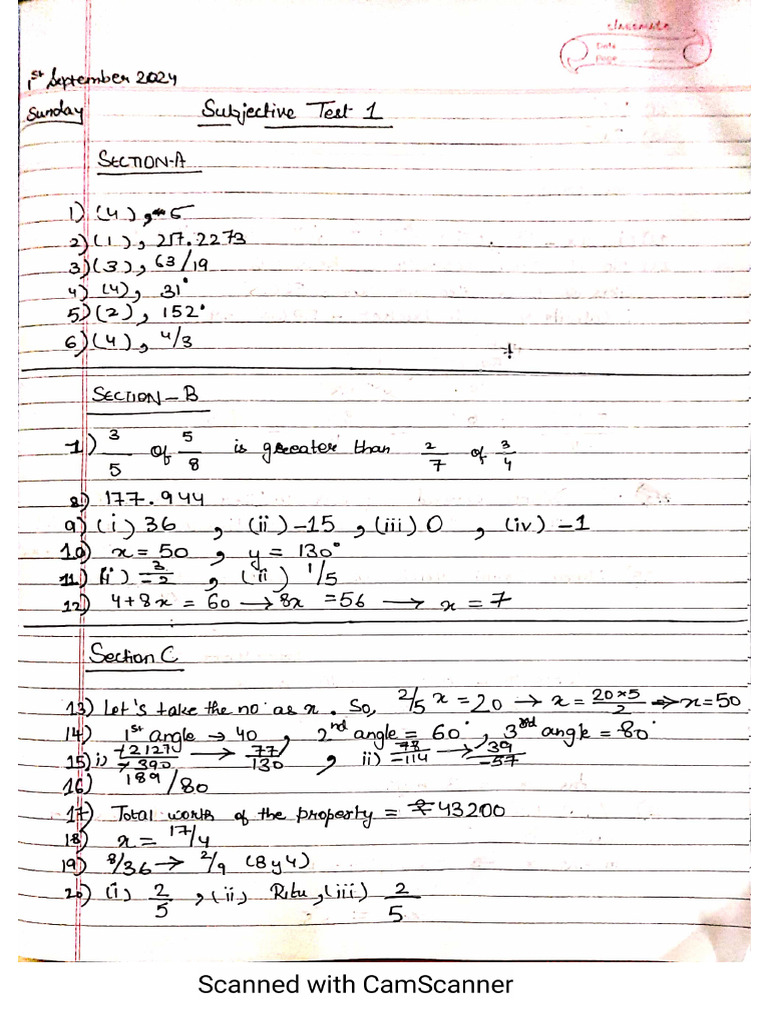 classmate
Date
Page
1st September 2024
Sunday
Subjective Test 1
SECTION-A
1) (4), -5
2) (1), 217.2273
3) (3), 63/19
4) (4), 31°
5) (2), 152°
6) (4), 4/3
SECTION-B
7) 3/5 of 5/8 is greater than 2/7 of 3/4
8) 177.944
9) (i) 36, (ii) -15, (iii) 0, (iv) -1
10) x = 50, y = 130°
11) (i) 3/-2, (ii) 1/5
12) 4+8x = 60 → 8x = 56 → x = 7
Section C
13) Let's take the no. as x. So, 2/5 x = 20 → x = 20×5/2 → x=50
14) 1st angle → 40, 2nd angle = 60°, 3rd angle = 80°
15) i) → 77/130, ii) 78/-114 → 39/-57
16) 189/80
17) Total worth of the property = ₹43200
18) x = 17/4
19) 8/36 → 2/9 (By 4)
20) (i) 2/5, (ii) Ritu, (iii) 2/5
Scanned with CamScanner